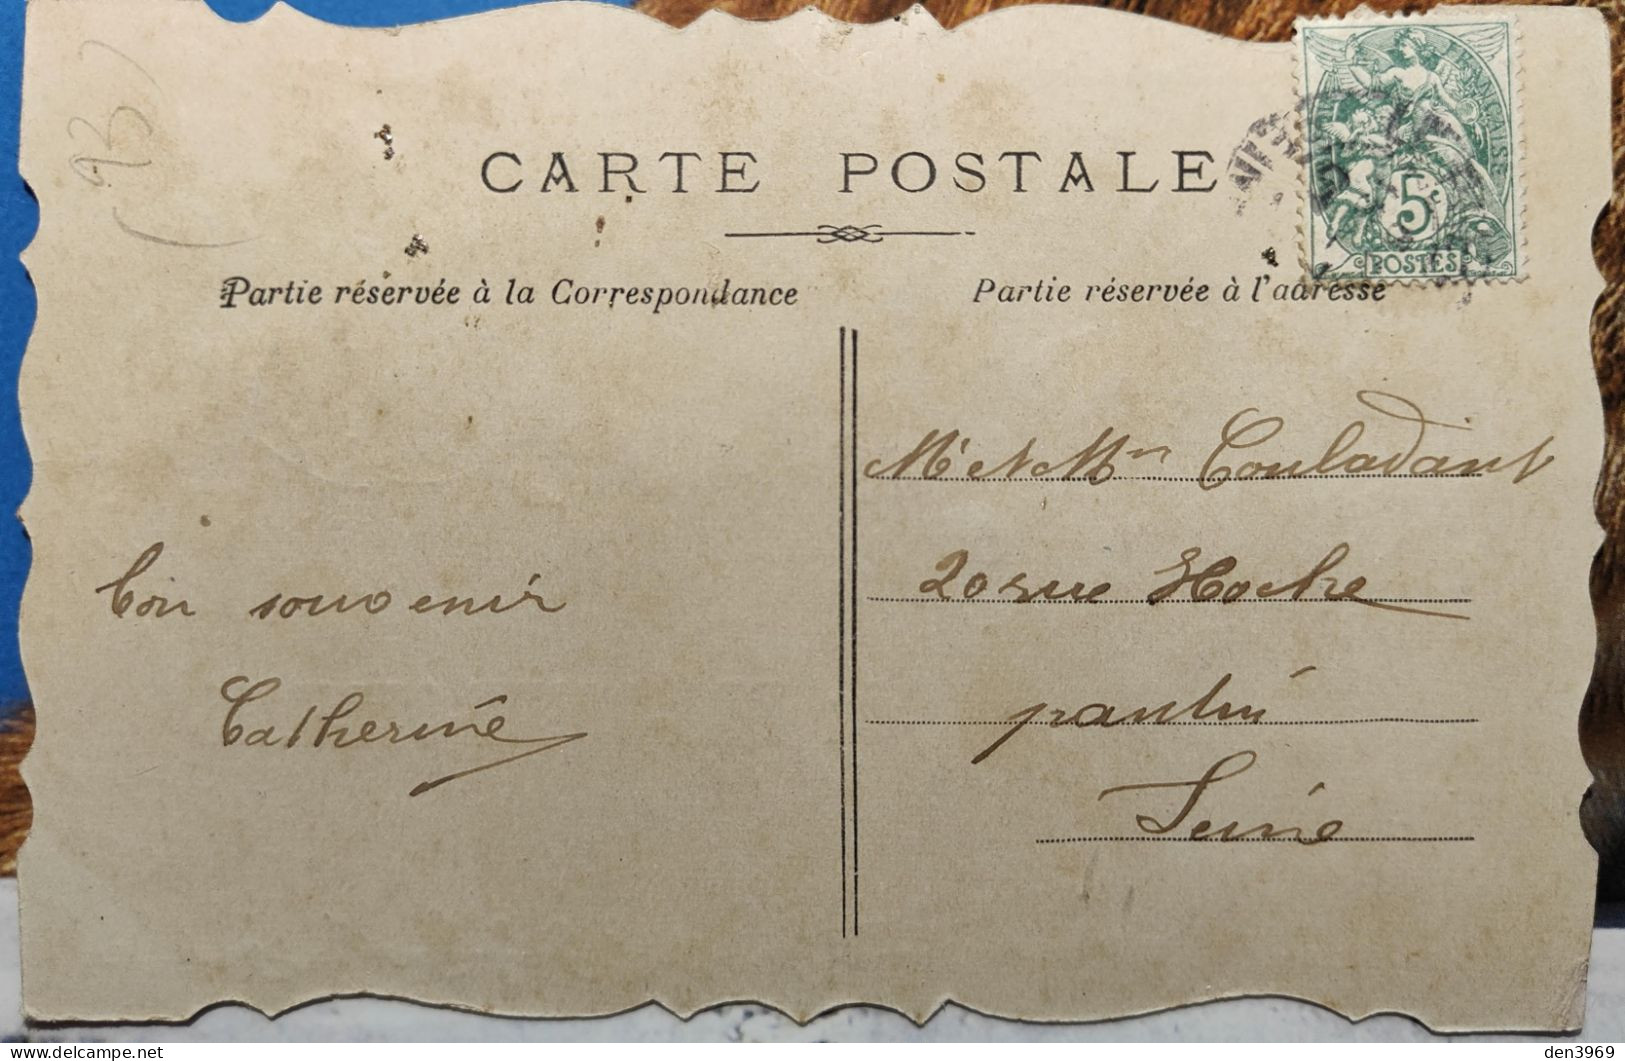 (93)
CARTE POSTALE
RÉPUBLIQUE FRANÇAISE
5c
POSTES
Partie réservée à la Correspondance
Partie réservée à l'adresse
bon souvenir
Catherine
Mr et Mm Couladant
20 rue Hoche
pantin
Seine
den3969
delcampe.net